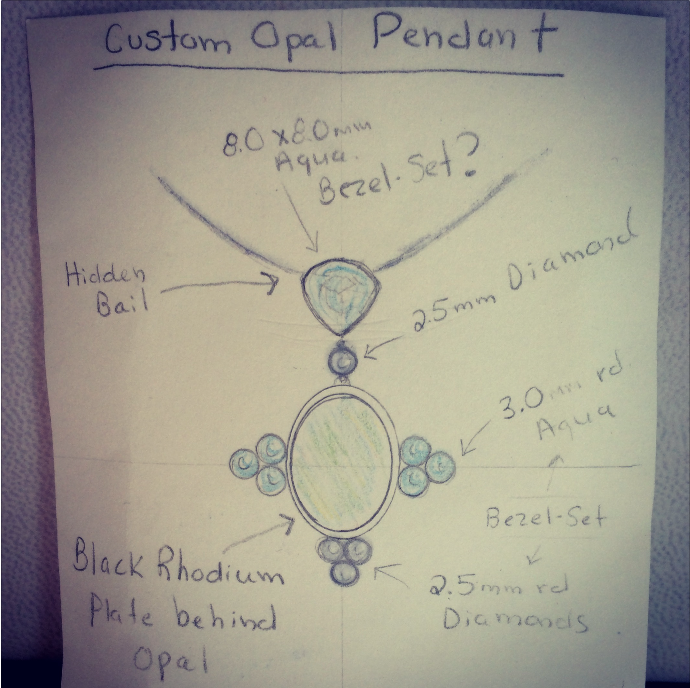 Custom Opal Pendant
8.0 x 8.0mm
Aqua
Bezel-Set?
Hidden
Bail
2.5mm Diamond
3.0mm rd.
Aqua
Bezel-Set
Black Rhodium
Plate behind
Opal
2.5mm rd
Diamonds